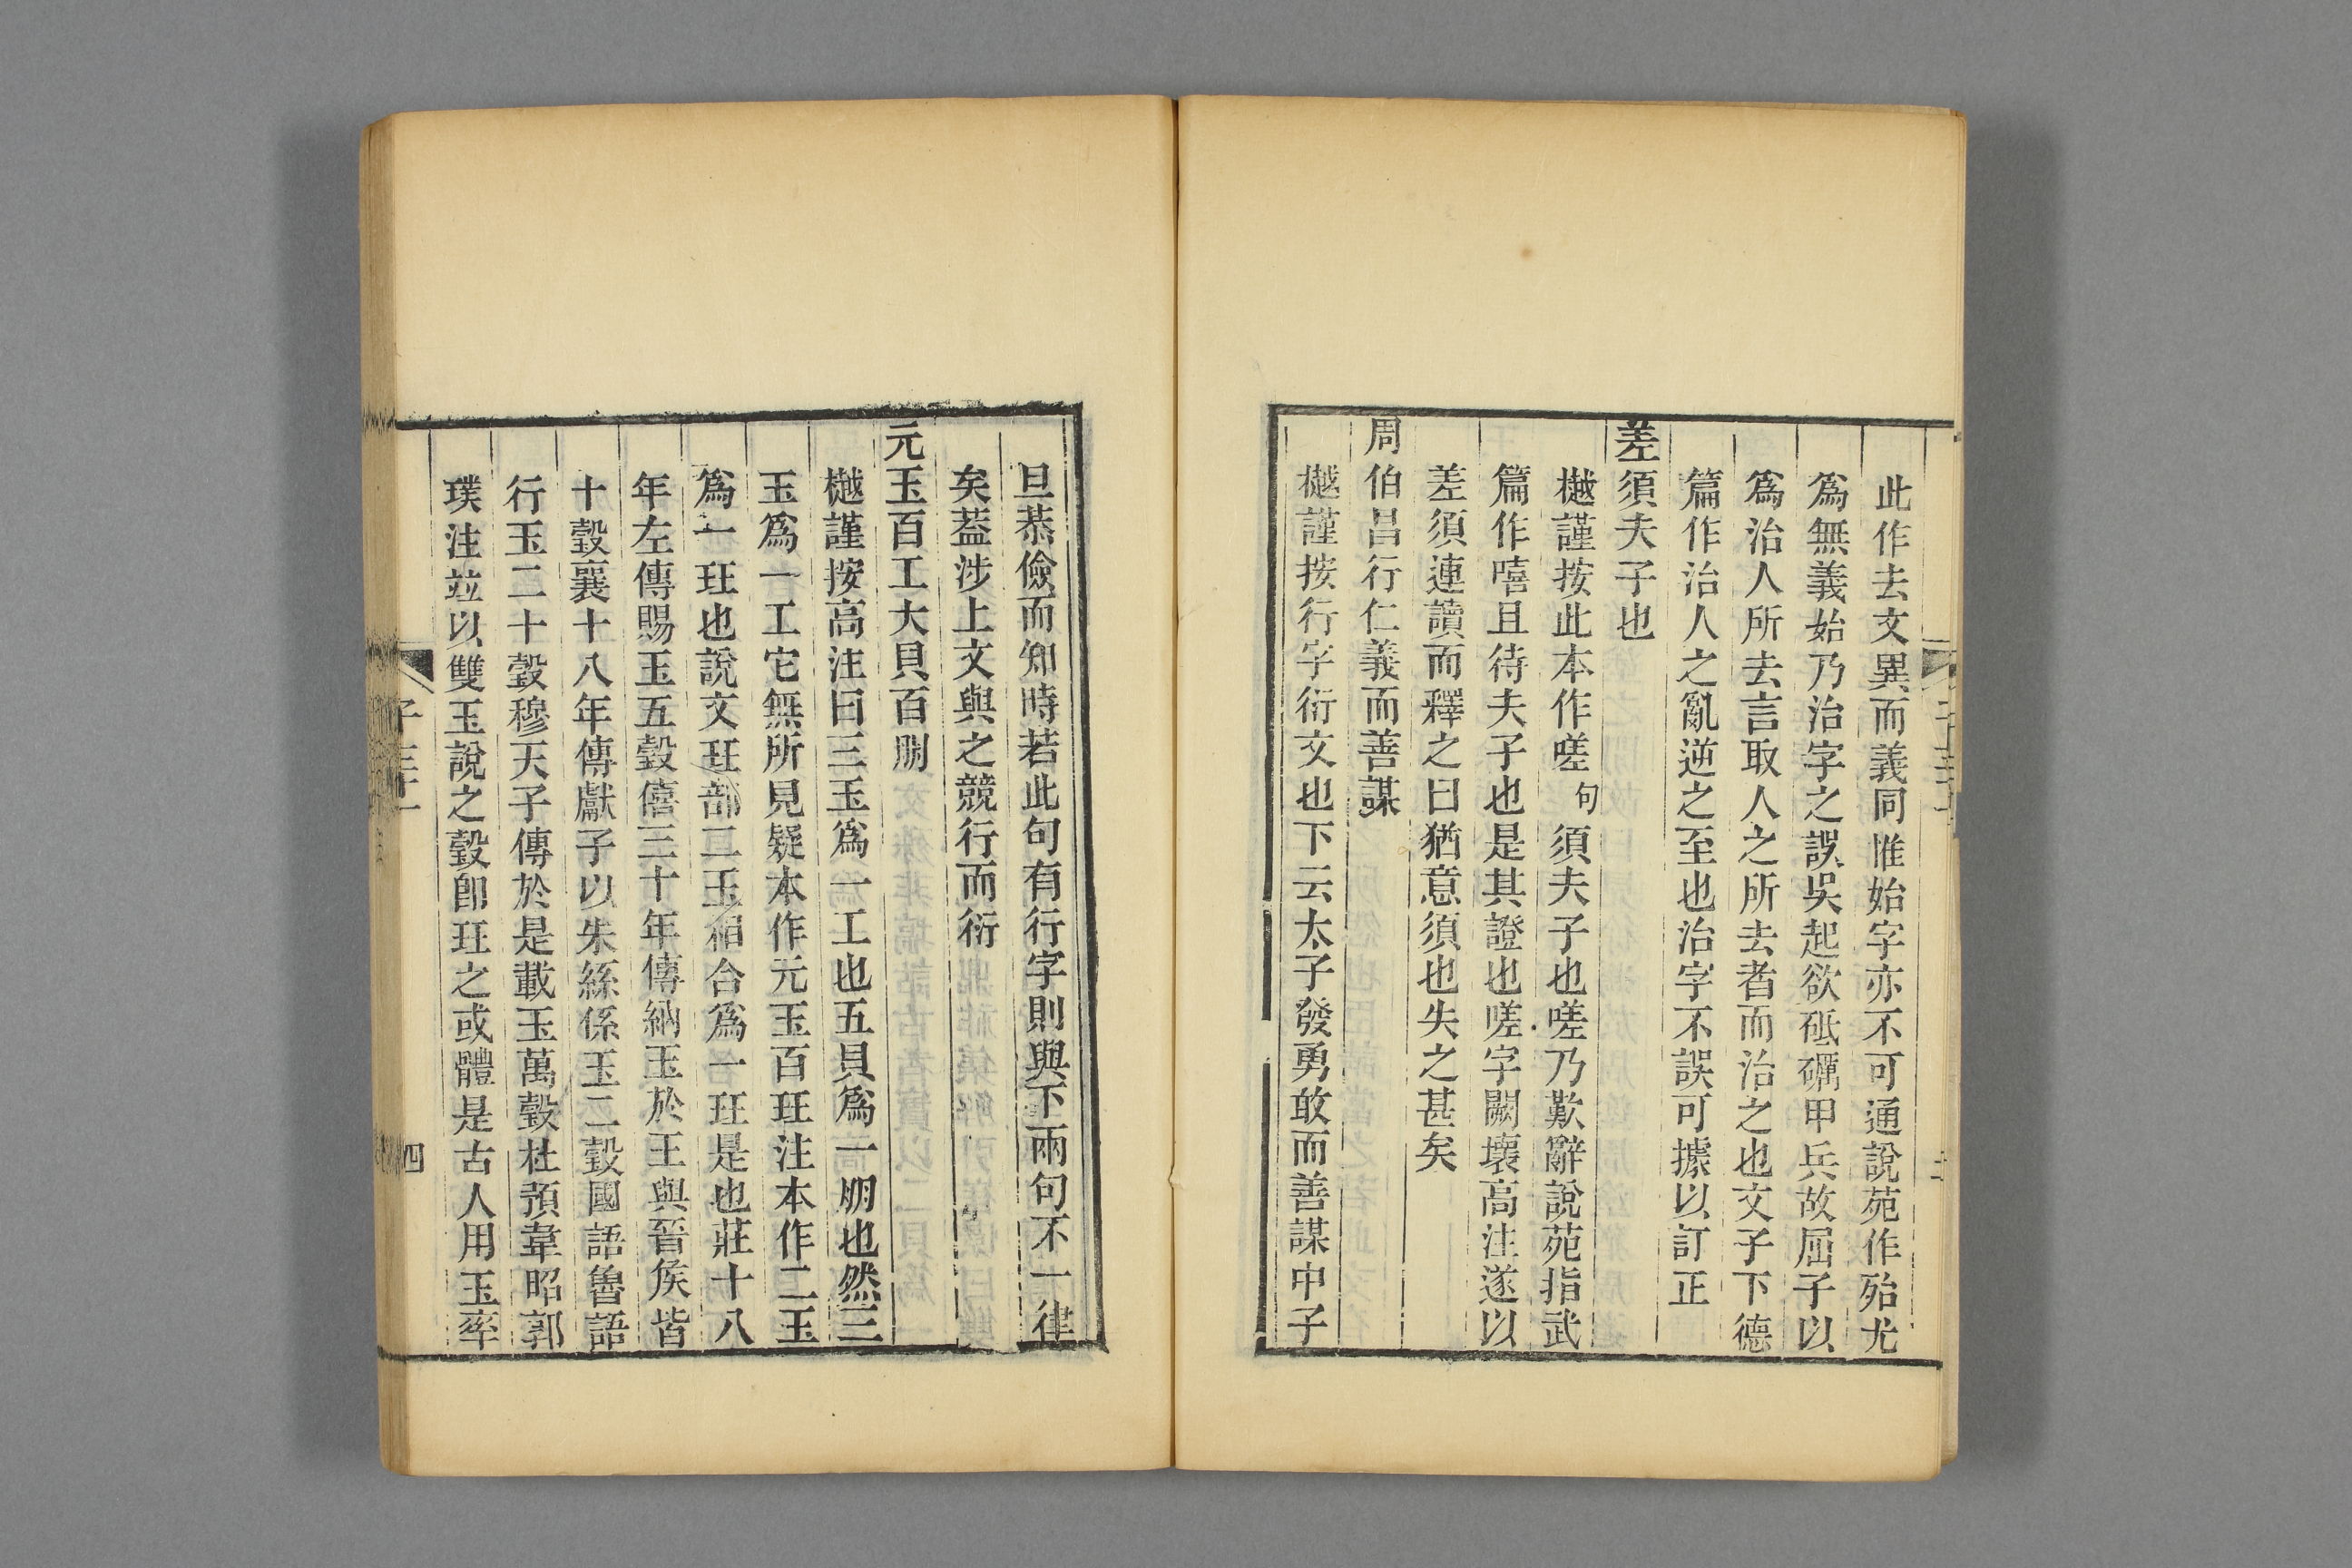 此作去文異而義同惟始字亦不可通說苑作殆尤
爲無義始乃治字之誤吳起欲砥礪甲兵故屈子以
爲治人所去言取人之所去者而治之也文子下德
篇作治人之亂逆之至也治字不誤可據以訂正
差須夫子也
樾謹按此本作嗟句須夫子也嗟乃歎辭說苑指武
篇作嘻且待夫子也是其證也嗟字闕壞高注遂以
差須連讀而釋之曰猶意須也失之甚矣
周伯昌行仁義而善謀
樾謹按行字衍文也下云太子發勇敢而善謀中子
旦恭儉而知時若此句有行字則與下兩句不一律
矣葢涉上文與之競行而衍
元玉百工大貝百朋
樾謹按高注曰三玉爲一工也五貝爲一朋也然三
玉爲一工它無所見疑本作元玉百玨注本作二玉
爲一玨也說文玨部二玉相合爲一玨是也莊十八
年左傳賜玉五瑴僖三十年傳納玉於王與晉矦皆
十瑴襄十八年傳獻子以朱絲係玉二瑴國語魯語
行玉二十瑴穆天子傳於是載玉萬瑴杜預韋昭郭
璞注竝以雙玉說之瑴卽玨之或體是古人用玉率
子三十一
四